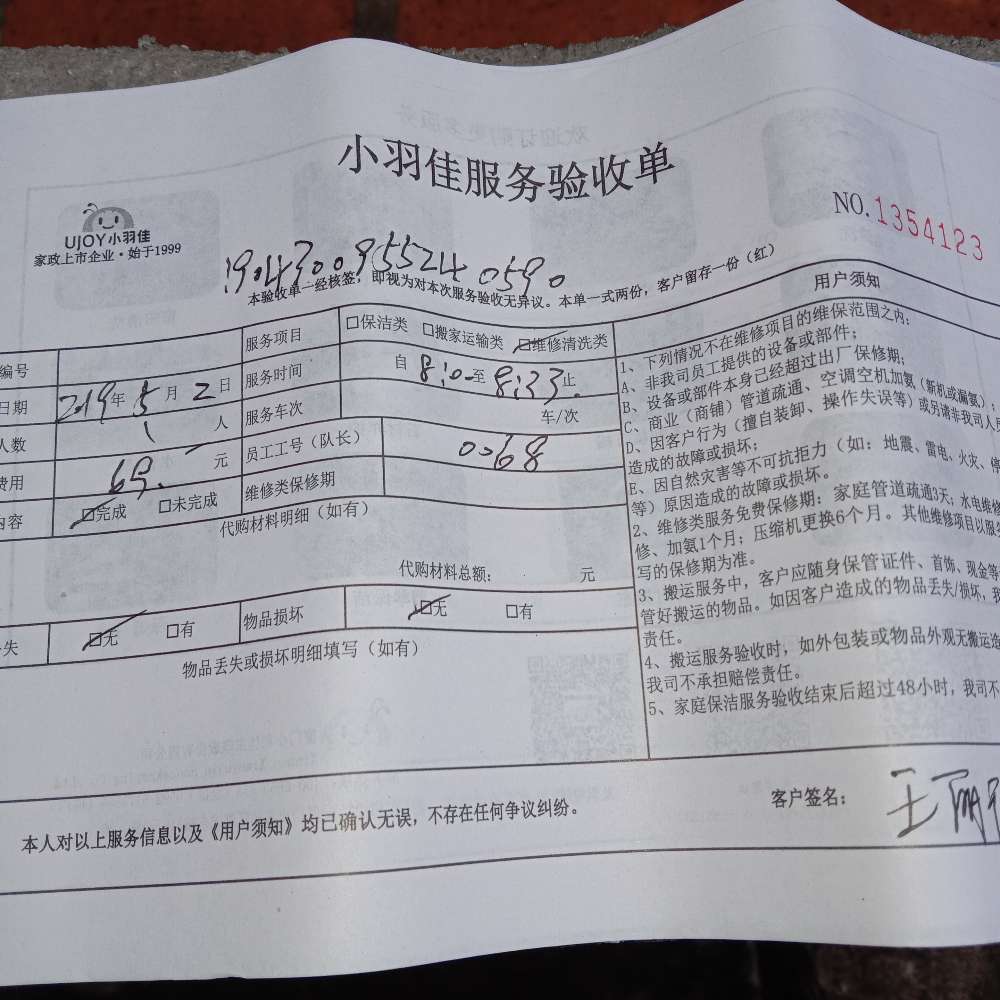 小羽佳服务验收单
NO.1354123
UJOY小羽佳
家政上市企业·始于1999
1904300955240590
本验收单一经核签，即视为对本次服务验收无异议。本单一式两份，客户留存一份（红）
编号
服务项目 □保洁类 □搬家运输类 □维修清洗类
日期 2019年5月2日 服务时间 自 8:0 至 8:33 止
人数 1 人 服务车次 车/次
费用 69. 元 员工工号（队长） 0068
内容 □完成 □未完成 维修类保修期
代购材料明细（如有）
代购材料总额： 元
失 □无 □有 物品损坏 □无 □有
物品丢失或损坏明细填写（如有）
用户须知
1、下列情况不在维修项目的维保范围之内：
A、非我司员工提供的设备或部件；
B、设备或部件本身已经超过出厂保修期；
C、商业（商铺）管道疏通、空调空机加氨（新机或漏氨）；
D、因客户行为（擅自装卸、操作失误等）或另请非我司人员
造成的故障或损坏；
E、因自然灾害等不可抗拒力（如：地震、雷电、火灾、停
等）原因造成的故障或损坏。
2、维修类服务免费保修期：家庭管道疏通3天；水电维修
修、加氨1个月；压缩机更换6个月。其他维修项目以服务
写的保修期为准。
3、搬运服务中，客户应随身保管证件、首饰、现金等
管好搬运的物品。如因客户造成的物品丢失/损坏，我
责任。
4、搬运服务验收时，如外包装或物品外观无搬运造
我司不承担赔偿责任。
5、家庭保洁服务验收结束后超过48小时，我司不
本人对以上服务信息以及《用户须知》均已确认无误，不存在任何争议纠纷。
客户签名： 王丽